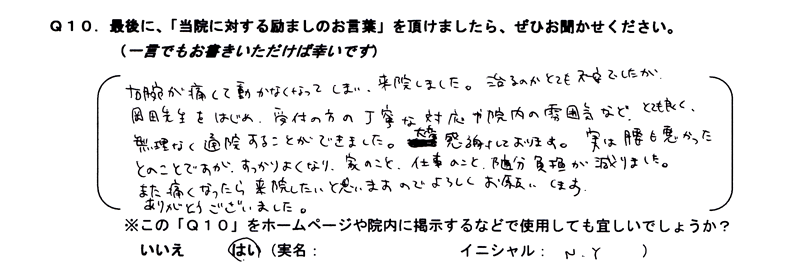 Q10. 最後に、「当院に対する励ましのお言葉」を頂けましたら、ぜひお聞かせください。
（一言でもお書きいただけば幸いです）
右腕が痛くて動かなくなってしまい、来院しました。治るのかとても不安でしたが、
岡田先生をはじめ、受付の方の丁寧な対応や院内の雰囲気など、とても良く、
無理なく通院することができました。大変感謝しております。実は腰も悪かった
とのことですが、すっかりよくなり、家のこと、仕事のこと、随分負担が減りました。
また痛くなったら来院したいと思いますのでよろしくお願いします。
ありがとうございました。
※この「Q10」をホームページや院内に掲示するなどで使用しても宜しいでしょうか？
いいえ　はい（実名：　　　イニシャル：N.Y　）